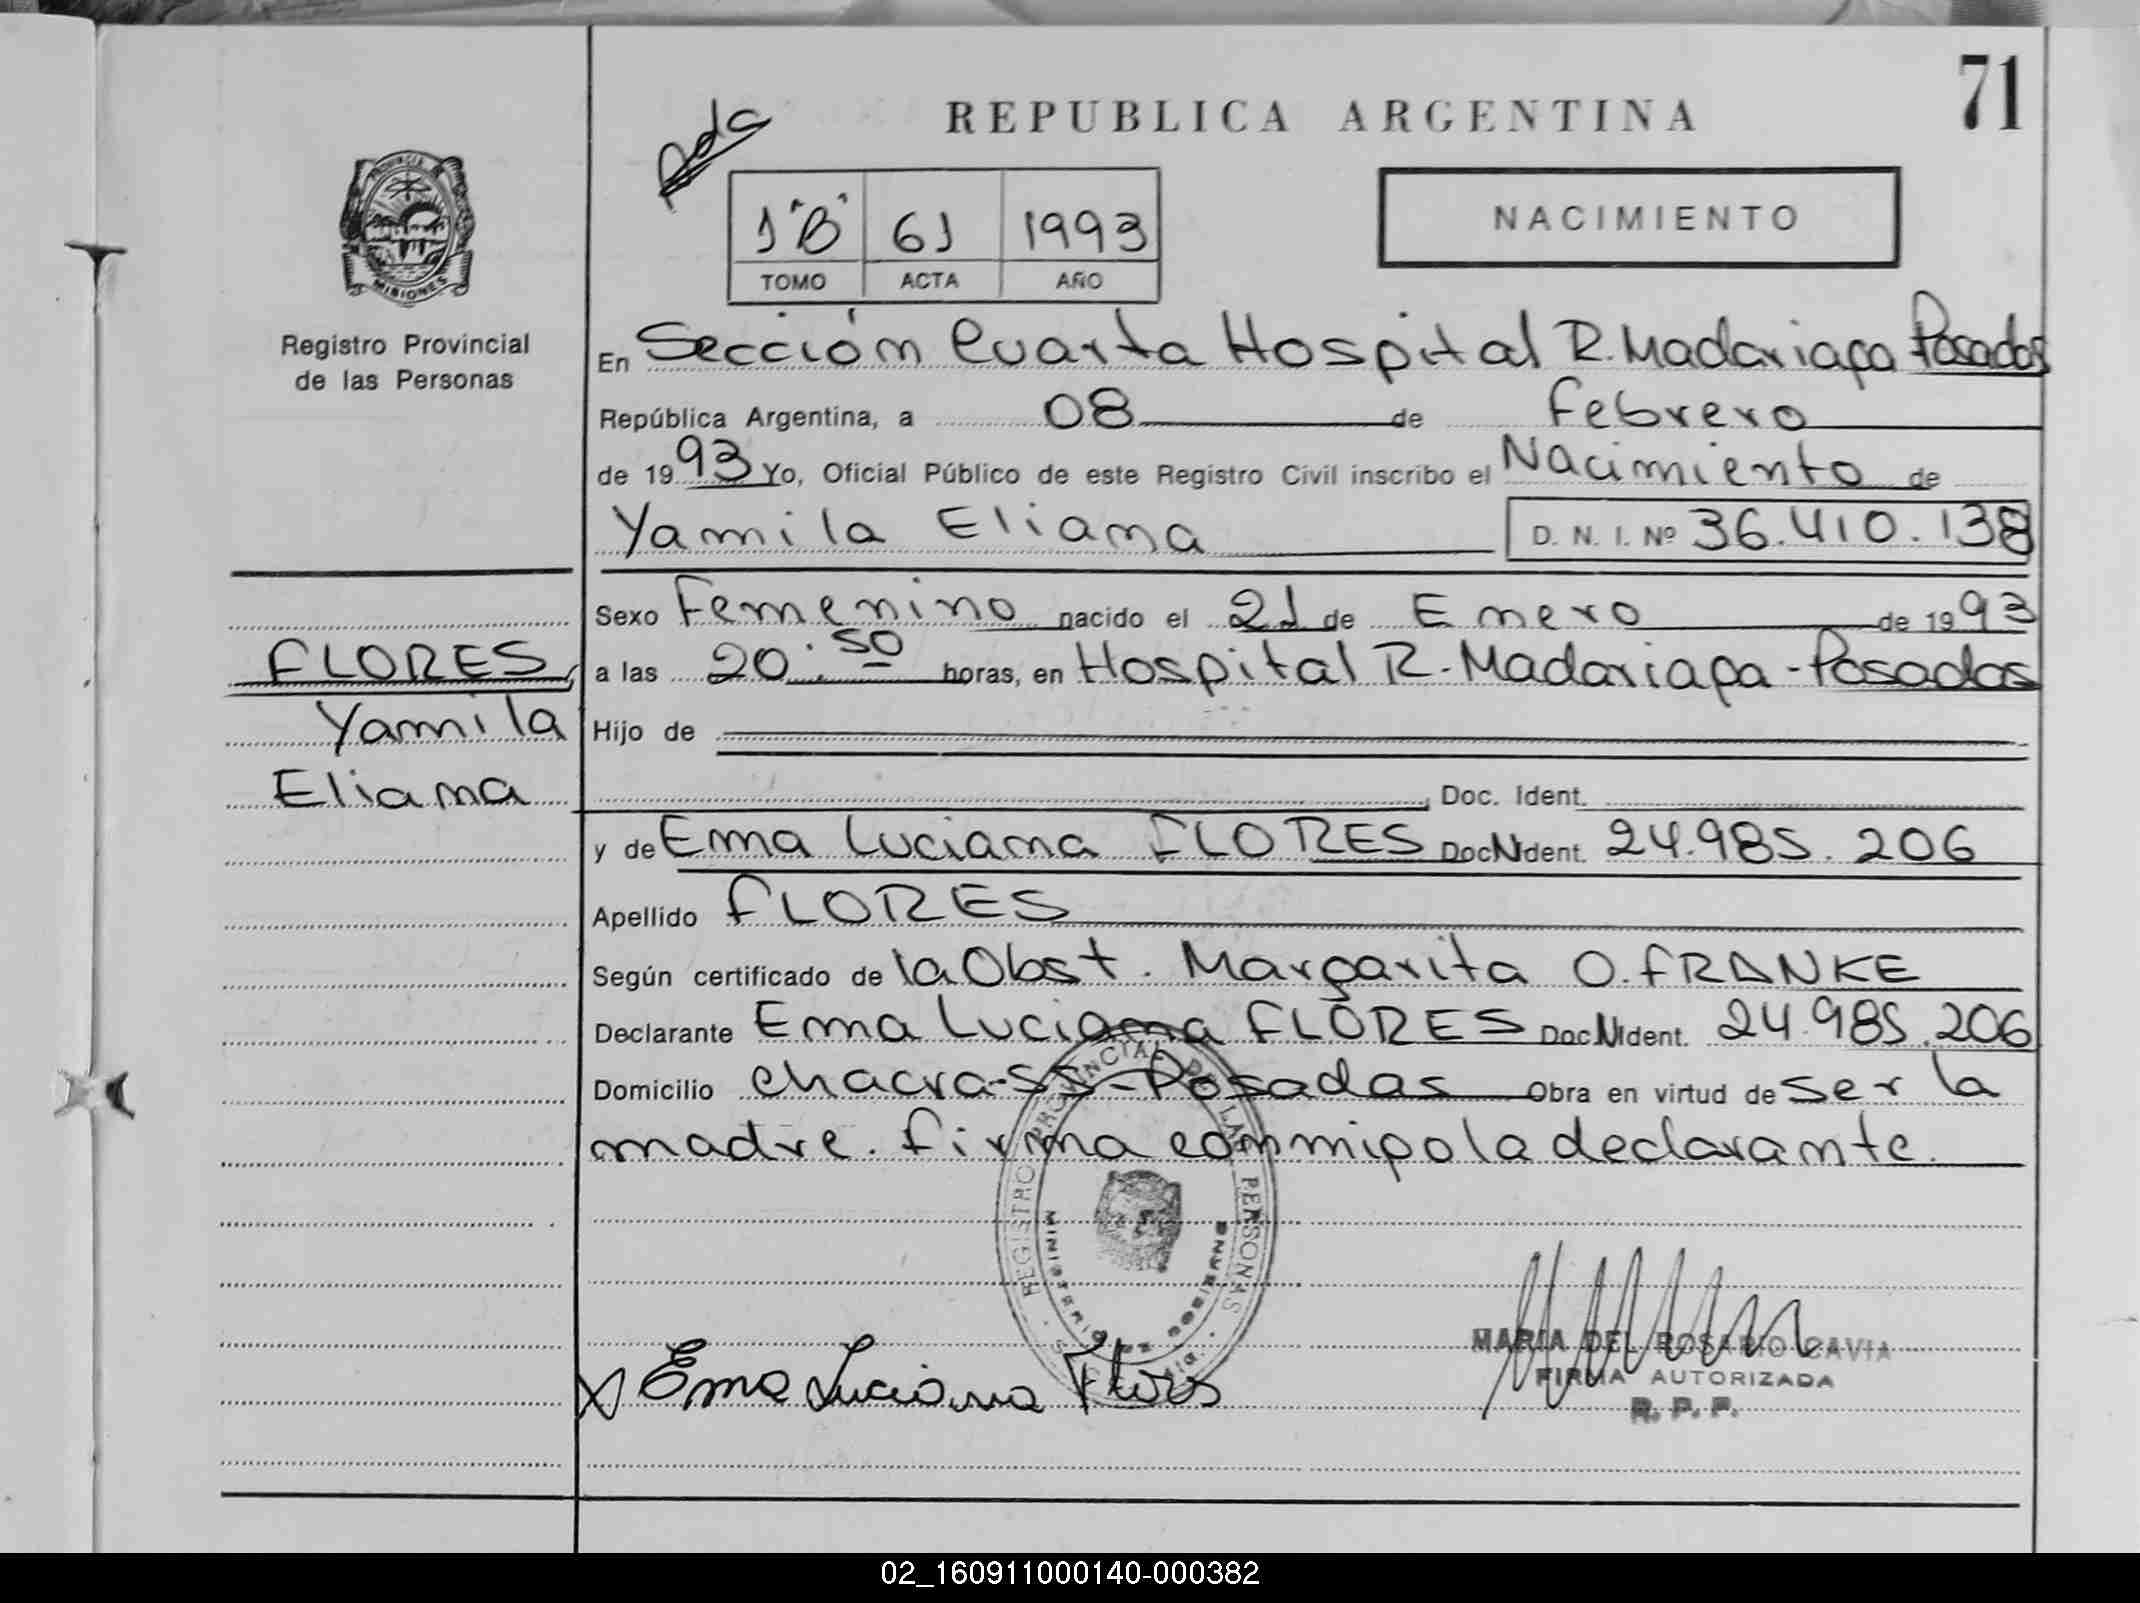 71
REPUBLICA ARGENTINA
NACIMIENTO
1"B" 61 1993
TOMO ACTA AÑO
PROVINCIA
MISIONES
Registro Provincial
de las Personas
En Sección Cuarta Hospital R. Madariaga Posadas
República Argentina, a 08 de Febrero
de 1993 Yo, Oficial Público de este Registro Civil inscribo el Nacimiento de
Yamila Eliana D. N. I. Nº 36.410.138
Sexo Femenino nacido el 21 de Enero de 1993
FLORES,
a las 20:50 horas, en Hospital R. Madariaga - Posadas
Yamila
Hijo de
Eliana
Doc. Ident.
y de Ema Luciana FLORES Doc N Ident. 24.985.206
Apellido FLORES
Según certificado de la Obst. Margarita O. FRANKE
Declarante Ema Luciana FLORES Doc N Ident. 24.985.206
Domicilio chacra-55-Posadas Obra en virtud de ser la
madre. Firma conmigo la declarante.
REGISTRO PROVINCIAL DE LAS PERSONAS
MINISTERIO DE GOBIERNO
MARIA DEL ROSARIO CAVIA
FIRMA AUTORIZADA
R. P. P.
X Ema Luciana Flores
02_160911000140-000382